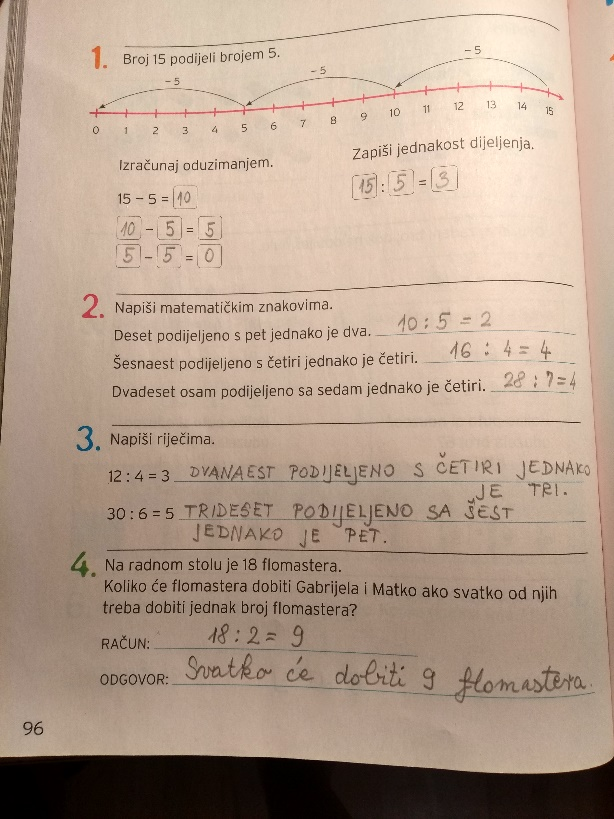 1. Broj 15 podijeli brojem 5.
-5 -5 -5
0 1 2 3 4 5 6 7 8 9 10 11 12 13 14 15
Izračunaj oduzimanjem.
Zapiši jednakost dijeljenja.
15 - 5 = 10
15 : 5 = 3
10 - 5 = 5
5 - 5 = 0
2. Napiši matematičkim znakovima.
Deset podijeljeno s pet jednako je dva. 10 : 5 = 2
Šesnaest podijeljeno s četiri jednako je četiri. 16 : 4 = 4
Dvadeset osam podijeljeno sa sedam jednako je četiri. 28 : 7 = 4
3. Napiši riječima.
12 : 4 = 3 DVANAEST PODIJELJENO S ČETIRI JEDNAKO
JE TRI.
30 : 6 = 5 TRIDESET PODIJELJENO SA ŠEST
JEDNAKO JE PET.
4. Na radnom stolu je 18 flomastera.
Koliko će flomastera dobiti Gabrijela i Matko ako svatko od njih
treba dobiti jednak broj flomastera?
RAČUN: 18 : 2 = 9
ODGOVOR: Svatko će dobiti 9 flomastera.
96